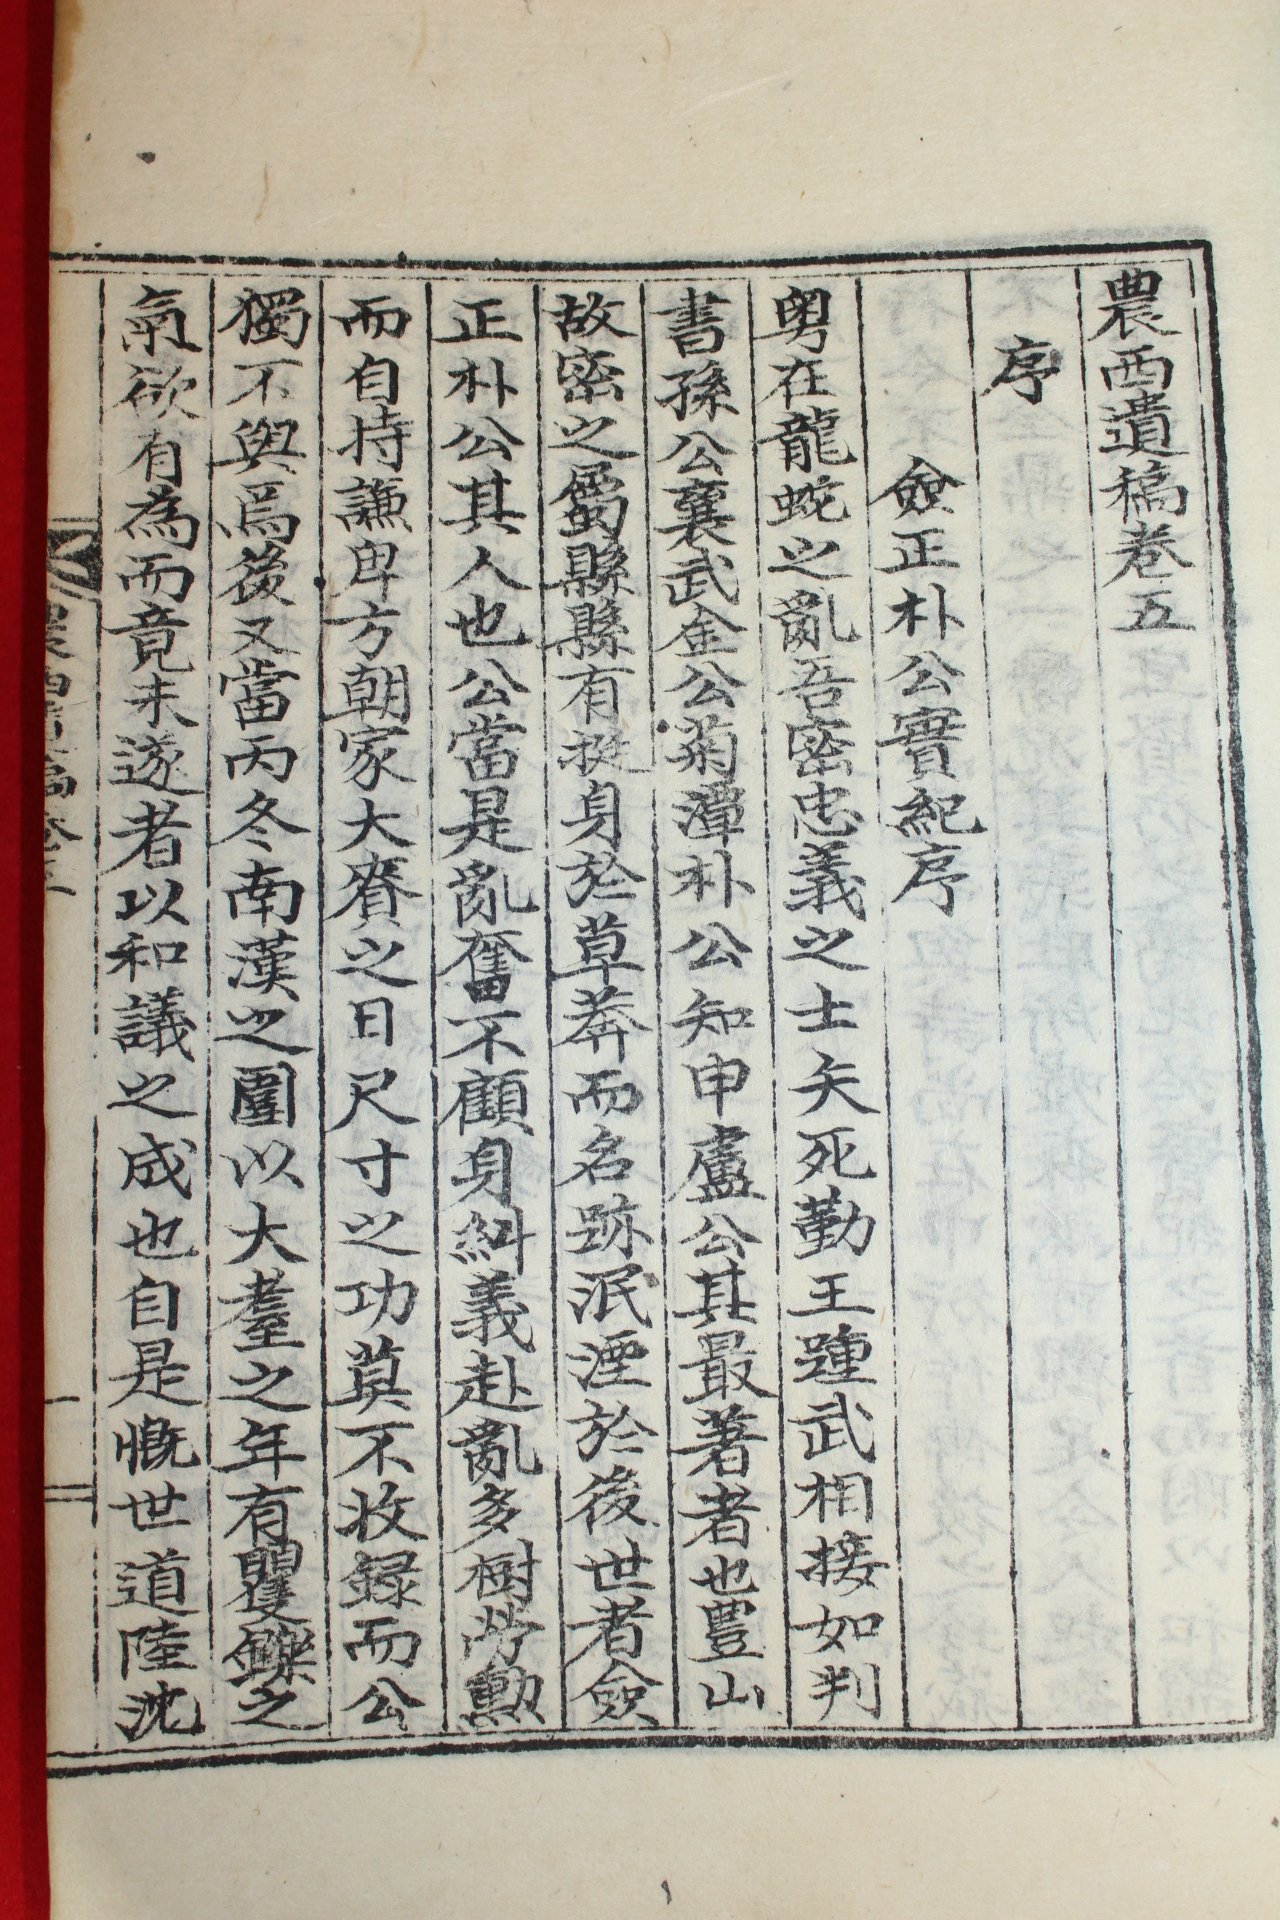 農西遺稿卷五
序
僉正朴公實紀序
粤在龍蛇之亂吾密忠義之士矢死勤王踵武相接如判
書孫公襄武金公菊潭朴公知申盧公其最著者也豊山
故密之屬縣縣有挺身於草莽而名跡泯湮於後世者僉
正朴公其人也公當是亂奮不顧身糾義赴亂多樹勞勳
而自持謙卑方朝家大賚之日尺寸之功莫不收録而公
獨不與焉後又當丙冬南漢之圍以大耋之年有矍鑠之
氣欲有為而竟未遂者以和議之成也自是慨世道陸沈